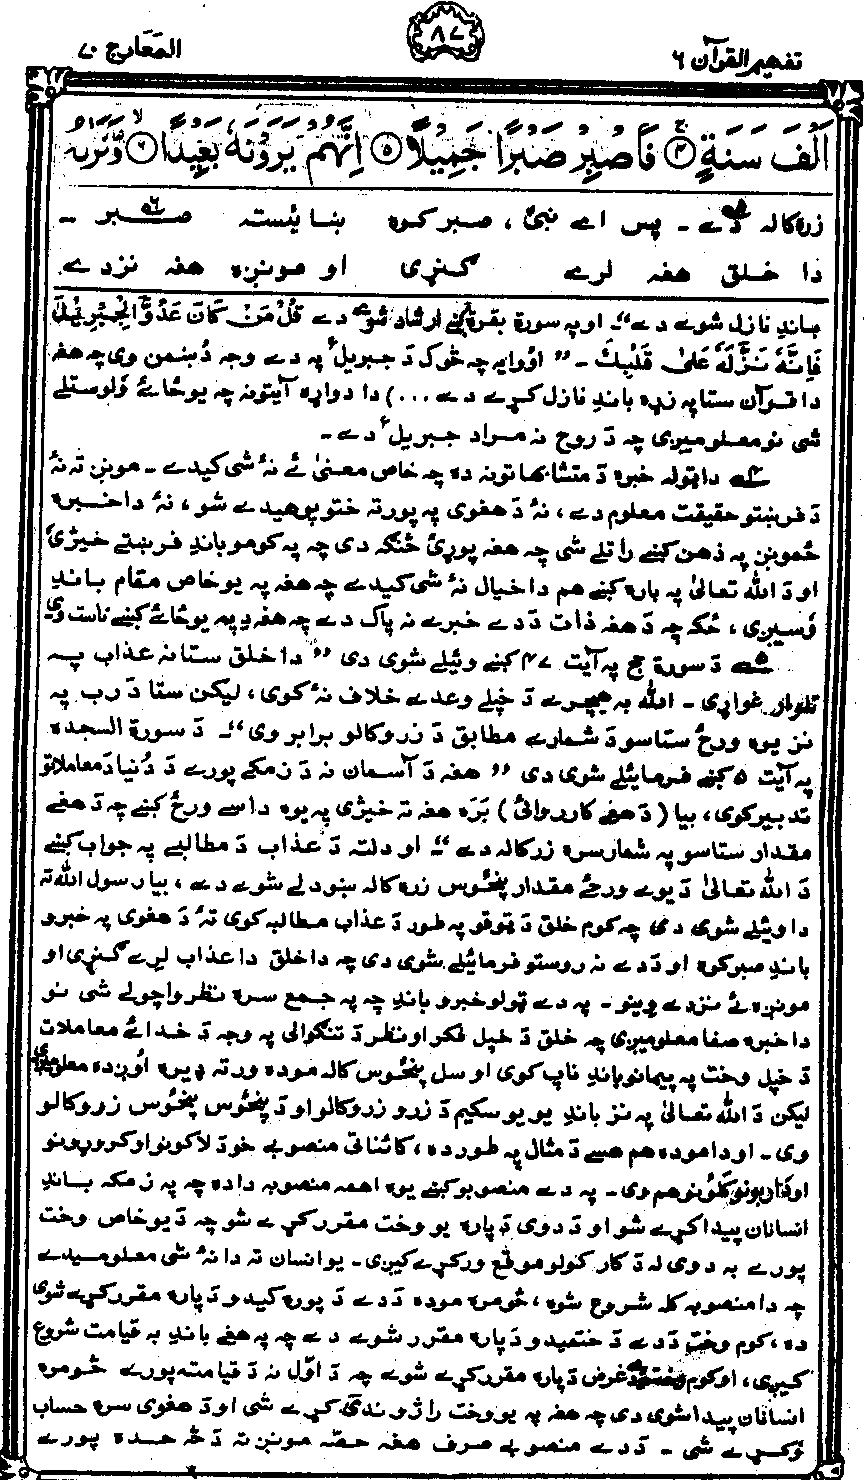 تفهيم القرآن ۶
۸۷
المعارج ۷۰
اَلْفَ سَنَةٍ ۝۴ فَاصْبِرْ صَبْرًا جَمِيْلًا ۝۵ اِنَّهُمْ يَرَوْنَهٗ بَعِيْدًا ۝۶ وَّنَرٰىهُ
زره کاله دے ـ پس اے نبیؐ ، صبر کوه ښائسته صبر ـ
دا خلق هغه لرے ګنړی او مونږه هغه نزدے
باندِ نازل شوے دے“ـ او په سورة بقره کښے ارشاد شوے دے قُلْ مَنْ كَانَ عَدُوًّا لِّجِبْرِيْلَ
فَاِنَّهٗ نَزَّلَهٗ عَلٰى قَلْبِكَ ـ ” اوُوايه چه څوک دَ جبريلؑ په دے وجه دُښمن وی چه هغه
دا قرآن ستا په زړه باندِ نازل کړے دے ...) دا دواړه آيتونه چه يو ځائے وَلوستلے
شی نو معلوميږی چه دَ روح نه مراد جبريلؑ دے ـ
۴ دا ټوله خبره دَ متشابهاتونه ده چه خاص معنیٰ ئے نهٔ شی کيدے ـ مونږ ته نهٔ
دَ فرښتو حقيقت معلوم دے ، نهٔ دَ هغوی په پورته ختو پوهيدے شو ، نهٔ دا خبره
ځمونږ په ذهن کښے راتلے شی چه هغه پوړئ څنګه دی چه په کومو باندِ فرښتے خيژی
او دَ الله تعالیٰ په باره کښے هم دا خيال نهٔ شی کيدے چه هغه په يو خاص مقام باندِ
وَسيږی ، ځکه چه دَ هغه ذات دَ دے خبرے نه پاک دے چه هغه دِ په يو ځائے کښے ناست وی
۵ دَ سورة حج په آيت ۴۷ کښے وئيلے شوی دی ” دا خلق ستا نه عذاب په
تلوار غواړی ـ الله به هيچرے دَ خپلے وعدے خلاف نهٔ کوی ، ليکن ستا دَ رب په
نز يوه ورځ ستاسو دَ شمارے مطابق دَ زرو کالو برابر وی“ـ دَ سورة السجده
په آيت ۵ کښے فرمائيلے شوی دی ” هغه دَ آسمان نه دَ زمکے پورے دَ دُنيا دَ معاملاتو
تدبير کوی ، بيا ( دَ هغے کارروائی ) بَره هغه ته خيژی په يوه داسے ورځ کښے چه دَ هغے
مقدار ستاسو په شمار سره زر کاله دے “ـ او دلته دَ عذاب دَ مطالبے په جواب کښے
دَ الله تعالیٰ دَ يوے ورځے مقدار پنځوس زره کاله ښودلے شوے دے ، بيا رسول الله ته
دا وئيلے شوی دی چه کوم خلق دَ ټوقو په طور دَ عذاب مطالبه کوی تهٔ دَ هغوی په خبرو
باندِ صبر کوه او دَ دے نه روستو فرمائيلے شوی دی چه دا خلق دا عذاب لرے ګنړی او
مونږه ئے نزدے وينو ـ په دے ټولو خبرو باندِ چه په جمع سره نظر واچولے شی نو
دا خبره صفا معلوميږی چه خلق دَ خپل فکر او نظر دَ تنګوالی په وجه دَ خدائے معاملات
دَ خپل وخت په پيمانو باندِ ناپ کوی او سل پنځوس کاله موده ورته ډيره اُوږده معلوميږی
ليکن دَ الله تعالیٰ په نز باندِ يو يو سکيم دَ زرو زرو کالو او دَ پنځوس پنځوس زرو کالو
وی ـ او دا موده هم هسے دَ مثال په طور ده ، کائناتی منصوبے خو دَ لاکونو او کروړونو
او اربونو کلونو هم وی ـ په دے منصوبو کښے يوه اهمه منصوبه دا ده چه په زمکه باندِ
انسانان پيدا کړے شو او دَ دوی دَ پاره يو وخت مقرر کړے شو چه دَ يو خاص وخت
پورے به دوی له دَ کار کولو موقع ورکړے کيږی ـ يو انسان ته دا نهٔ شی معلوميدے
چه دا منصوبه کله شروع شوه ، څومره موده دَ دے دَ پوره کيدو دَ پاره مقرر کړے شوی
ده ، کوم وخت دَ دے دَ ختميدو دَ پاره مقرر شوے دے چه په هغے باندِ به قيامت شروع
کيږی ، او کوم وخت دَ دے غرض دَ پاره مقرر کړے شوے چه دَ اوّل نه دَ قيامته پورے څومره
انسانان پيدا شوی دی چه هغه په يو وخت راژوندی کړے شی او دَ هغوی سره حساب
وَکړے شی ـ دَ دے منصوبے صرف هغه حصّه مونږ ته دَ څه حده پورے